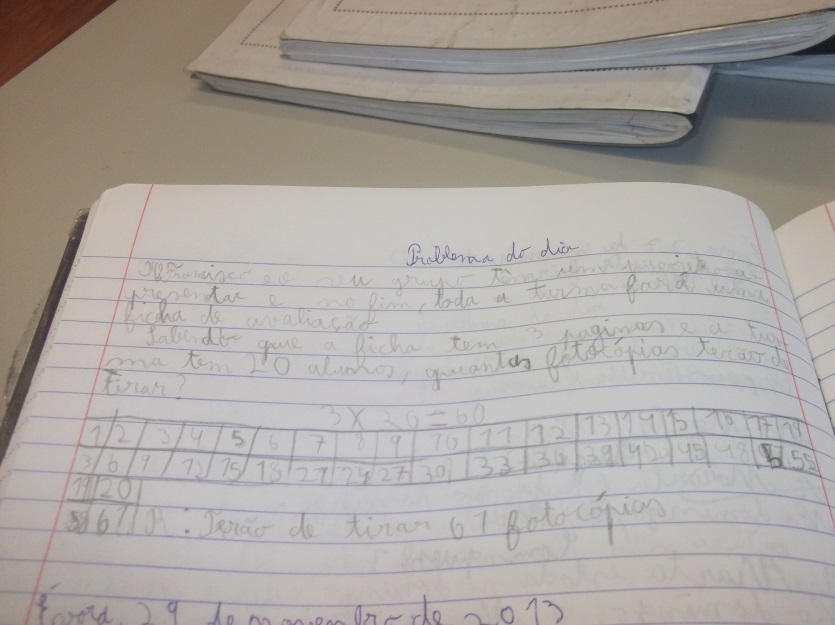 Problema do dia
Francisco e o seu grupo têm um projeto a
presentar e no fim, toda a turma fará uma
ficha de avaliação.
Sabendo que a ficha tem 3 paginas e a tur
ma tem 20 alunos, quantas fotocópias terão de
tirar?
3 X 20 = 60
1 2 3 4 5 6 7 8 9 10 11 12 13 14 15 16 17 18
3 6 9 12 15 18 21 24 27 30 33 36 39 42 45 48 5 55
19 20
61 R: Terão de tirar 61 fotocópias
Évora, 29 de novembro de 2013